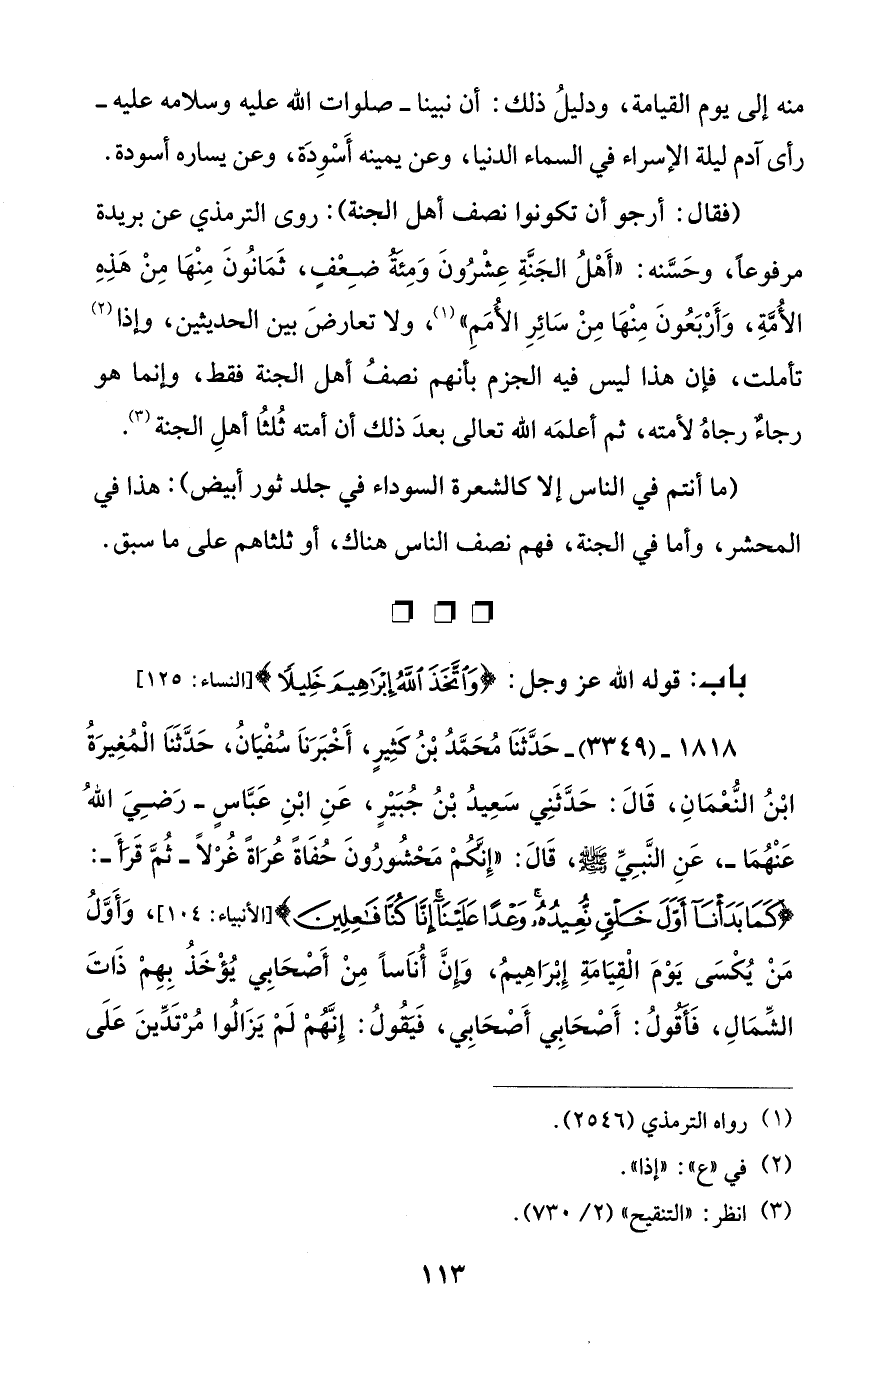 منه إلى يوم القيامة، ودليلُ ذلك: أن نبينا ـ صلوات الله عليه وسلامه عليه ـ
رأى آدم ليلة الإسراء في السماء الدنيا، وعن يمينه أَسْوِدَة، وعن يساره أسودة.
(فقال: أرجو أن تكونوا نصف أهل الجنة): روى الترمذي عن بريدة
مرفوعاً، وحَسَّنه: «أَهْلُ الجَنَّةِ عِشْرُونَ وَمِئَةُ ضِعْفٍ، ثَمَانُونَ مِنْهَا مِنْ هَذِهِ
الأُمَّةِ، وَأَرْبَعُونَ مِنْهَا مِنْ سَائِرِ الأُمَمِ»(١)، ولا تعارضَ بين الحديثين، وإذا(٢)
تأملت، فإن هذا ليس فيه الجزم بأنهم نصفُ أهل الجنة فقط، وإنما هو
رجاءٌ رجاهُ لأمته، ثم أعلمَه الله تعالى بعدَ ذلك أن أمته ثُلثُا أهلِ الجنة(٣).
(ما أنتم في الناس إلا كالشعرة السوداء في جلد ثور أبيض): هذا في
المحشر، وأما في الجنة، فهم نصف الناس هناك، أو ثلثاهم على ما سبق.
❒ ❒ ❒
باب: قوله الله عز وجل: ﴿وَٱتَّخَذَ ٱللَّهُ إِبْرَٰهِيمَ خَلِيلًا﴾[النساء: ١٢٥]
١٨١٨ ـ (٣٣٤٩) ـ حَدَّثَنَا مُحَمَّدُ بْنُ كَثِيرٍ، أَخْبَرَناَ سُفْيَانُ، حَدَّثَنَا الْمُغِيرَةُ
ابْنُ النُّعْمَانِ، قَالَ: حَدَّثَنِي سَعِيدُ بْنُ جُبَيْرٍ، عَنِ ابْنِ عَبَّاسٍ ـ رَضِيَ اللهُ
عَنْهُمَا ـ، عَنِ النَّبِيِّ ﷺ، قَالَ: «إِنَّكُمْ مَحْشُورُونَ حُفَاةً عُرَاةً غُرْلاً ـ ثُمَّ قَرَأَ ـ:
﴿كَمَا بَدَأْنَآ أَوَّلَ خَلْقٍ نُّعِيدُهُۥۚ وَعْدًا عَلَيْنَآۚ إِنَّا كُنَّا فَٰعِلِينَ﴾[الأنبياء: ١٠٤]، وَأَوَّلُ
مَنْ يُكْسَى يَوْمَ الْقِيَامَةِ إِبْرَاهِيمُ، وَإِنَّ أُنَاساً مِنْ أَصْحَابِي يُؤْخَذُ بِهِمْ ذَاتَ
الشِّمَالِ، فَأَقُولُ: أَصْحَابِي أَصْحَابِي، فَيَقُولُ: إِنَّهُمْ لَمْ يَزَالُوا مُرْتَدِّينَ عَلَى
(١) رواه الترمذي (٢٥٤٦).
(٢) في «ع»: «إذا».
(٣) انظر: «التنقيح» (٢/ ٧٣٠).
١١٣